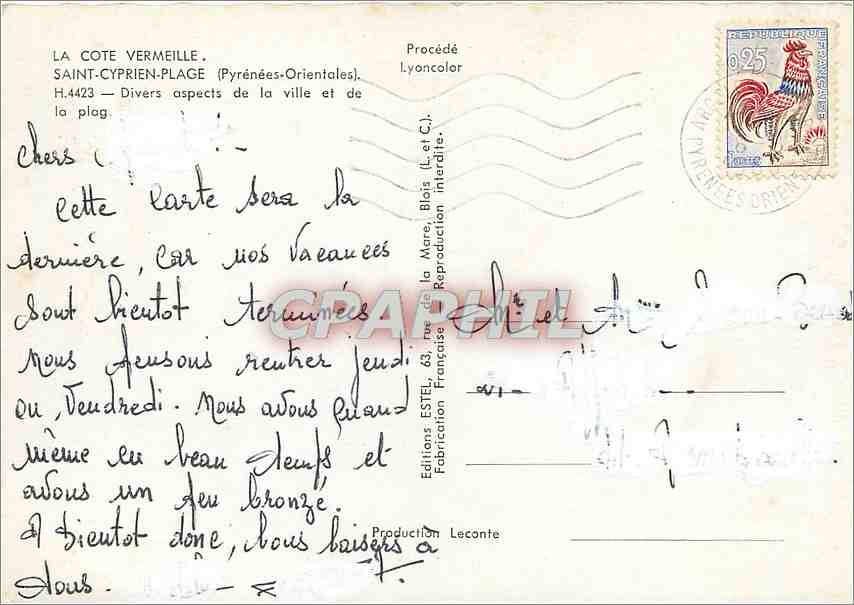 LA COTE VERMEILLE.
SAINT-CYPRIEN-PLAGE (Pyrénées-Orientales).
H.4423 — Divers aspects de la ville et de
la plag
Procédé
Lyoncolor
REPUBLIQUE FRANÇAISE
0,25
POSTES
PYRENEES ORIENT
Chers
Cette carte sera la
dernière, car nos vacances
sont bientot terminées
Nous pensons rentrer jeudi
ou, Vendredi. Nous avons quand
même eu beau temps et
avons un peu bronzé.
A bientot donc, bons baisers à
tous.
Editions ESTEL, 63, rue de la Mare, Blois (L. et C.).
Fabrication Française - Reproduction interdite.
Mr et Mme
Production Leconte
CPAPHIL